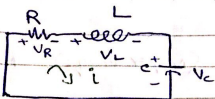 R L
+ V_R - + V_L -
i
C + - V_C